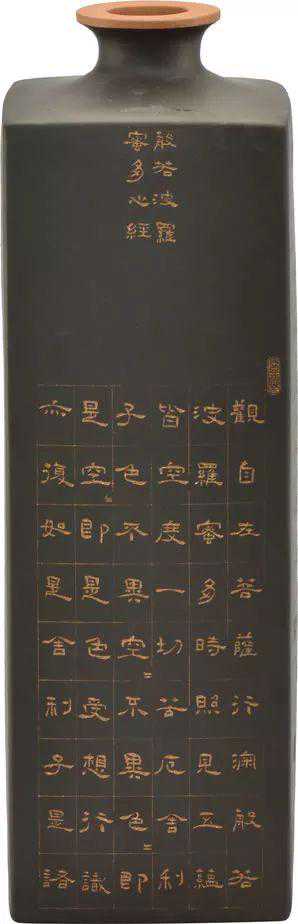 般若波羅
蜜多心經
觀自在菩薩行深般若
波羅蜜多時照見五蘊
皆空度一切苦厄舍利
子色不異空〻不異色〻即
是空〻即是色受想行識
亦復如是舍利子是諸